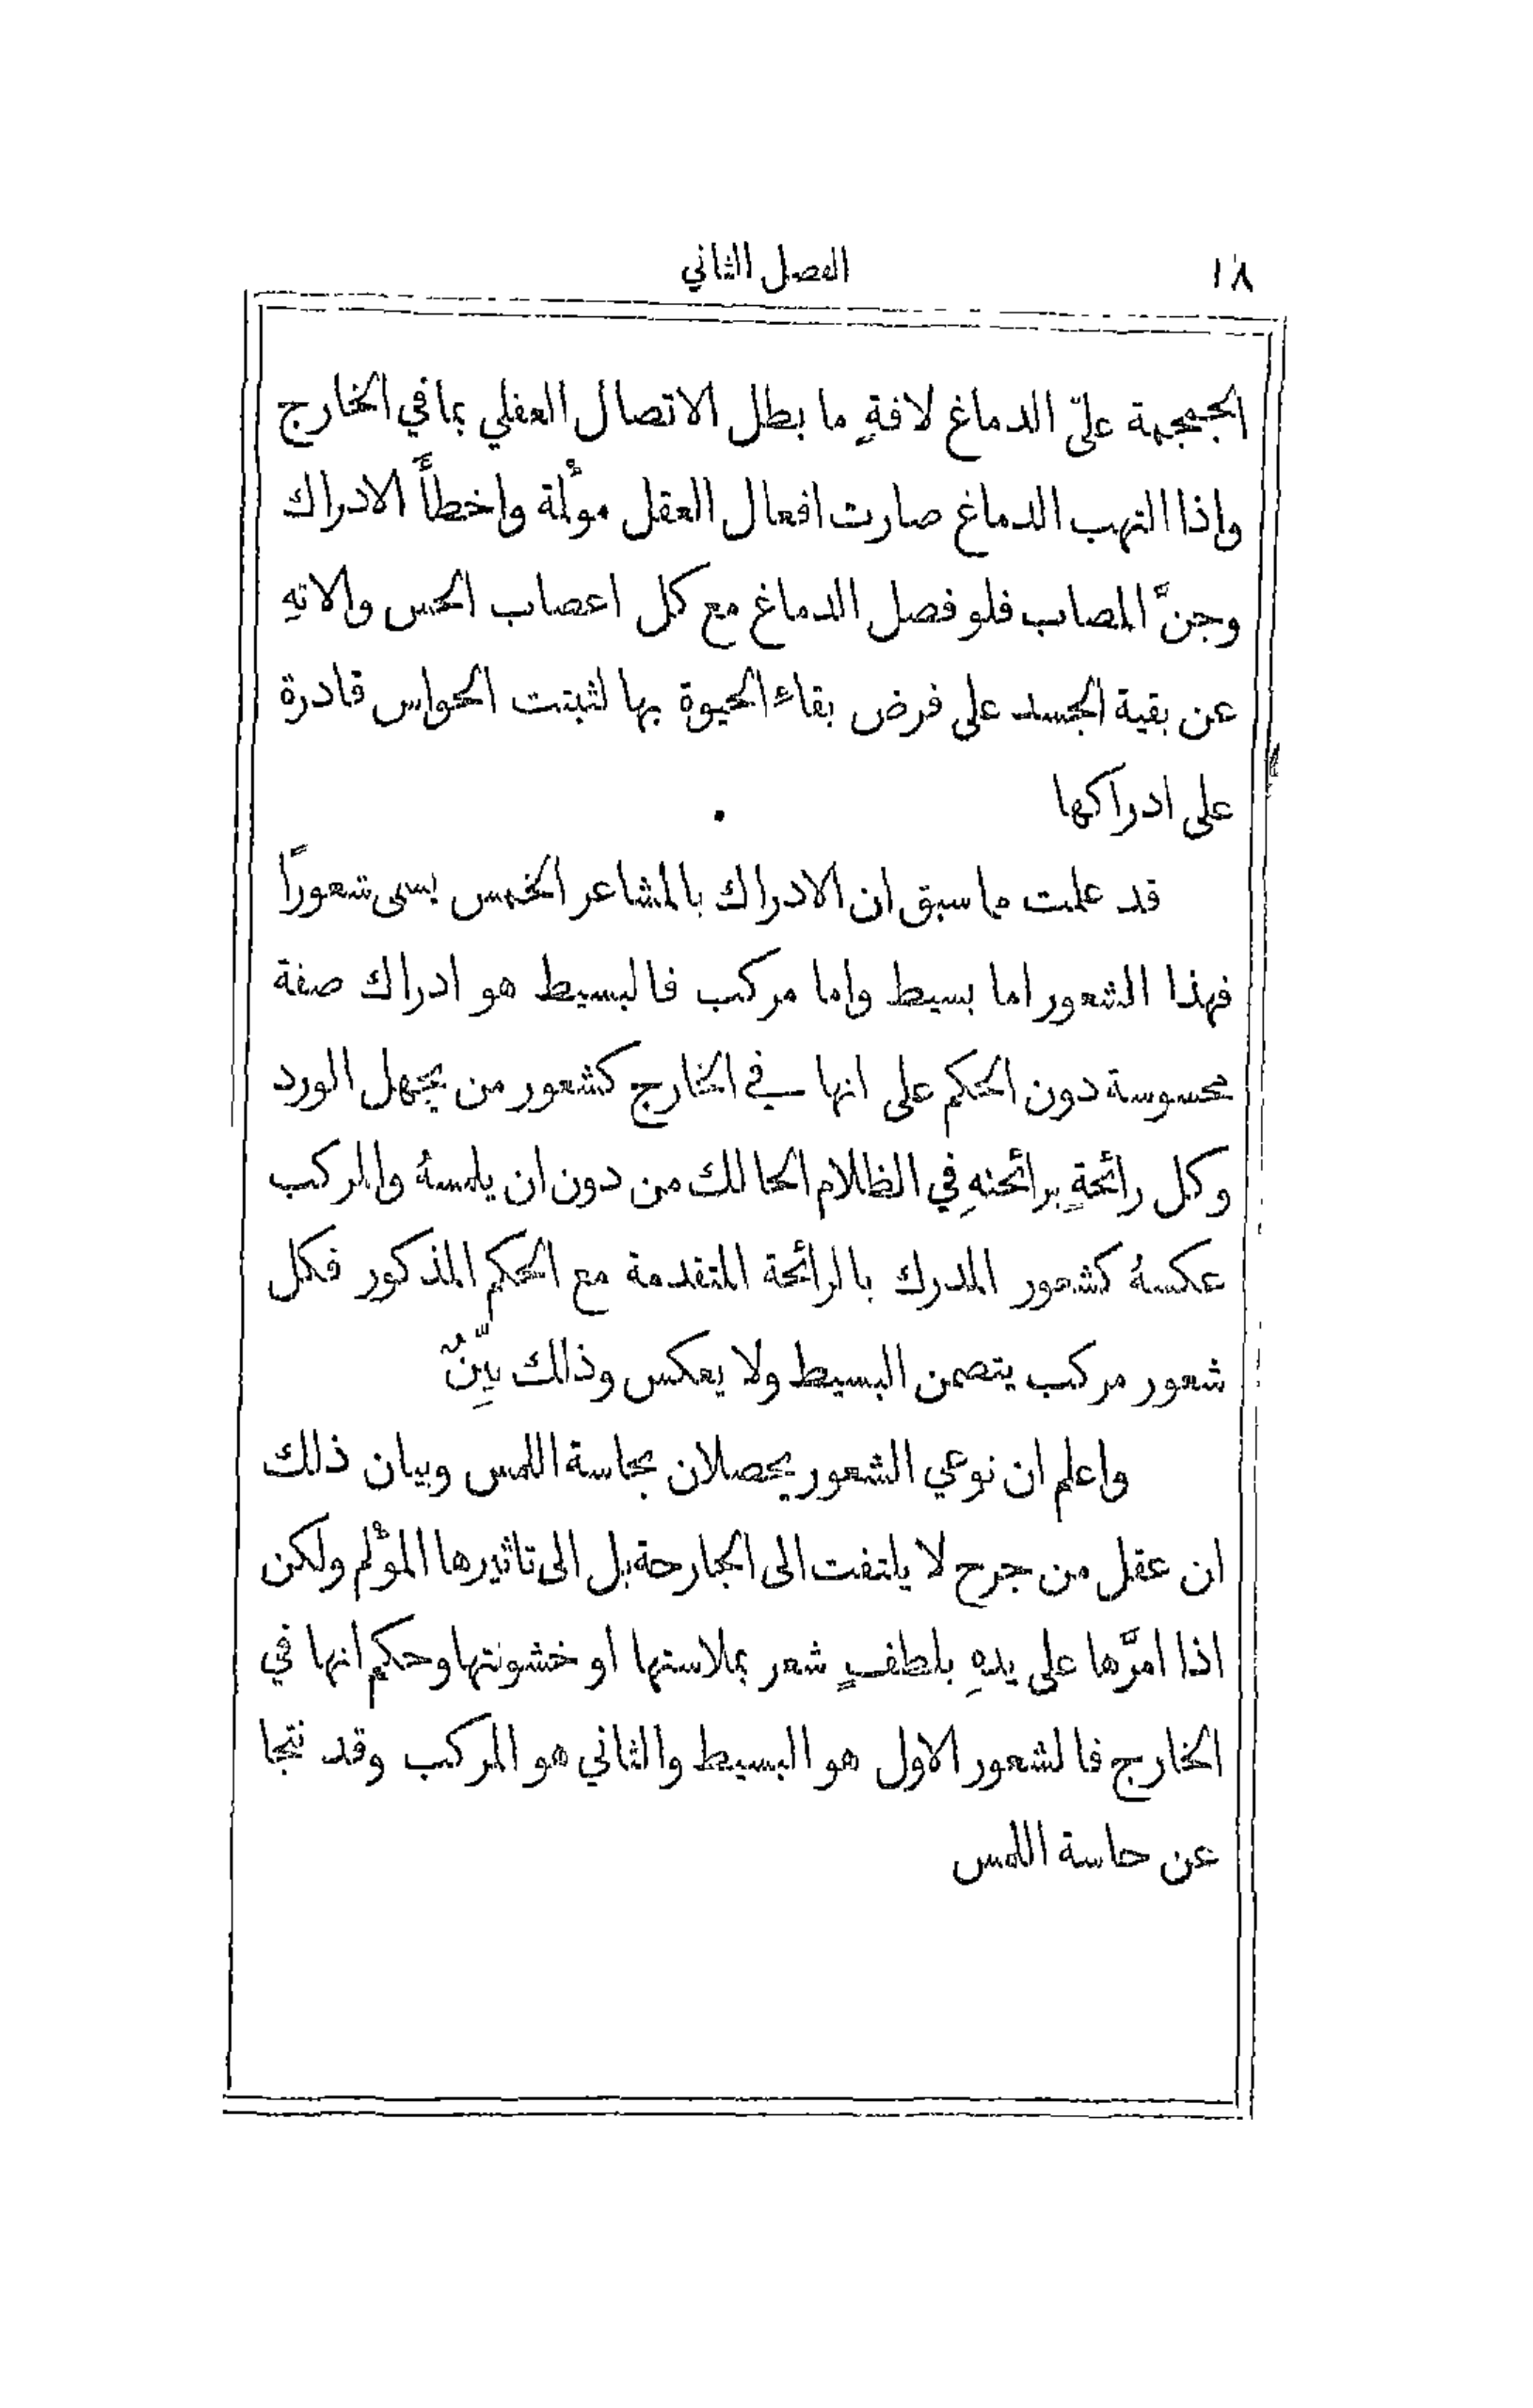 ١٨
الفصل الثاني
الجمجمة على الدماغ لافةٍ ما بطل الاتصال العقلي بما في الخارج
واذا التهب الدماغ صارت افعال العقل مولْمة واخطأَّ الادراك
وجنَّ المصاب فلو فصل الدماغ مع كل اعصاب الحس والاتهِ
عن بقية الجسد على فرض بقاءِ الحيوة بها لثبتت الحواس قادرة
على ادراكها
قد علمت مما سبق ان الادراك بالمشاعر الخمس يسمى شعورًا
فهذا الشعور اما بسيط واما مركب فالبسيط هو ادراك صفة
محسوسة دون الحكم على انها في الخارج كشعور من يجهل الورد
وكل رائحةٍ برائحتهِ في الظلام الحالك من دون ان يلمسهُ والمركب
عكسهُ كشعور المدرك بالرائحة المتقدمة مع الحكم المذكور فكل
شعور مركب يتضمن البسيط ولا يعكس وذلك بيِّنٌ
واعلم ان نوعي الشعور يحصلان بحاسة اللمس وبيان ذلك
ان عقل من جرح لا يلتفت الى الجارحة بل الى تاثيرها المؤلم ولكن
اذا امرَّها على يدهِ بلطفٍ شعر بملاستها او خشونتها وحكم انها في
الخارج فالشعور الاول هو البسيط والثاني هو المركب وقد نتجا
عن حاسة اللمس